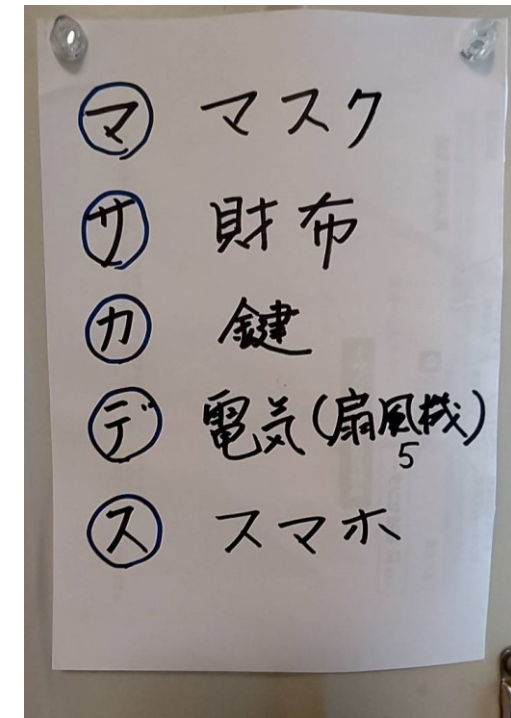 マ マスク
サ 財布
カ 鍵
デ 電気(扇風機)
5
ス スマホ